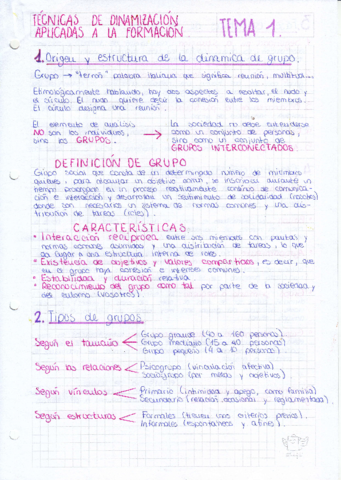 TÉCNICAS DE DINAMIZACIÓN
APLICADAS A LA FORMACIÓN
TEMA 1.
1. Origen y estructura de la dinámica de grupo.
Grupo → palabra italiana que significa reunión, multitud...
Etimológicamente hablando, hay dos aspectos a resaltar, el nudo y
el círculo. El nudo quiere decir la cohesión entre los miembros.
El círculo designa una reunión.
El elemento de análisis
NO son los individuos,
sino los GRUPOS.
→ La sociedad no debe entenderse
como un conjunto de personas,
sino como un conjunto de
GRUPOS INTERCONECTADOS
DEFINICIÓN DE GRUPO
Grupo social que consta de un determinado número de miembros
quienes, para alcanzar un objetivo común, se inscriben durante un
tiempo prolongado en un proceso relativamente continuo de comunica-
ción e interacción y desarrollan un sentimiento de solidaridad (nosotros)
donde son necesarios un sistema de normas comunes y una dis-
tribución de tareas (roles).
CARACTERÍSTICAS
• Interacción recíproca entre sus miembros con pautas y
normas comunes, asumidas y una distribución de tareas, lo que
da lugar a una estructura interna de roles.
• Existencia de objetivos y valores compartidos, es decir, que
en el grupo haya cohesión e intereses comunes.
• Estabilidad y duración relativa
• Reconocimiento del grupo como tal por parte de la sociedad y
del entorno (nosotros)
2. Tipos de grupos.
Según el tamaño
Grupo grande (40 a 160 personas)
Grupo mediano (15 a 40 personas)
Grupo pequeño (4 a 10 personas)
Según las relaciones
Psicogrupo (vinculación afectiva)
Sociogrupo (por metas y objetivos)
Según vínculos
Primario (intimidad y apego, como familia)
Secundario (relación ocasional, reglamentada)
Según estructuras
Formales (tienen unos criterios previos)
Informales (espontáneos y afines).